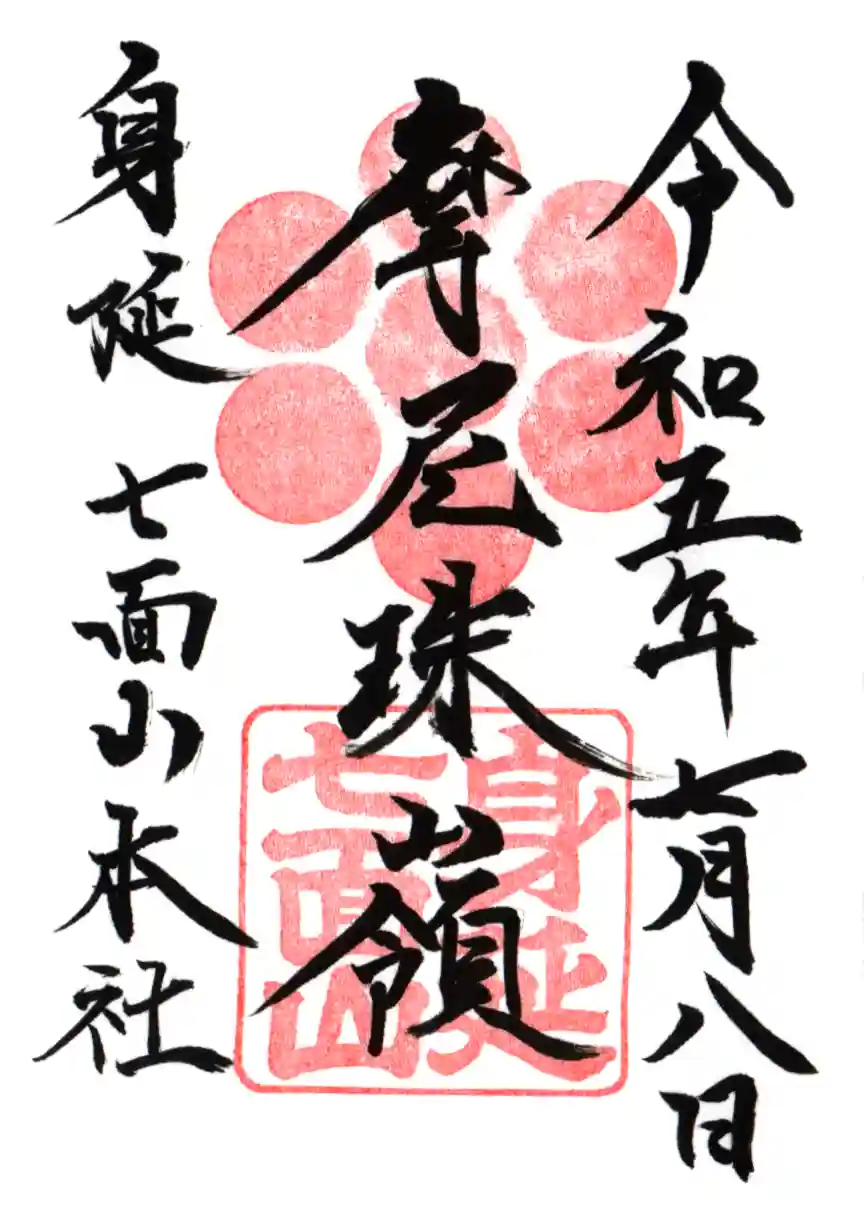 令和五年七月八日
摩尼珠嶺
身延七面山本社
身延
七面山